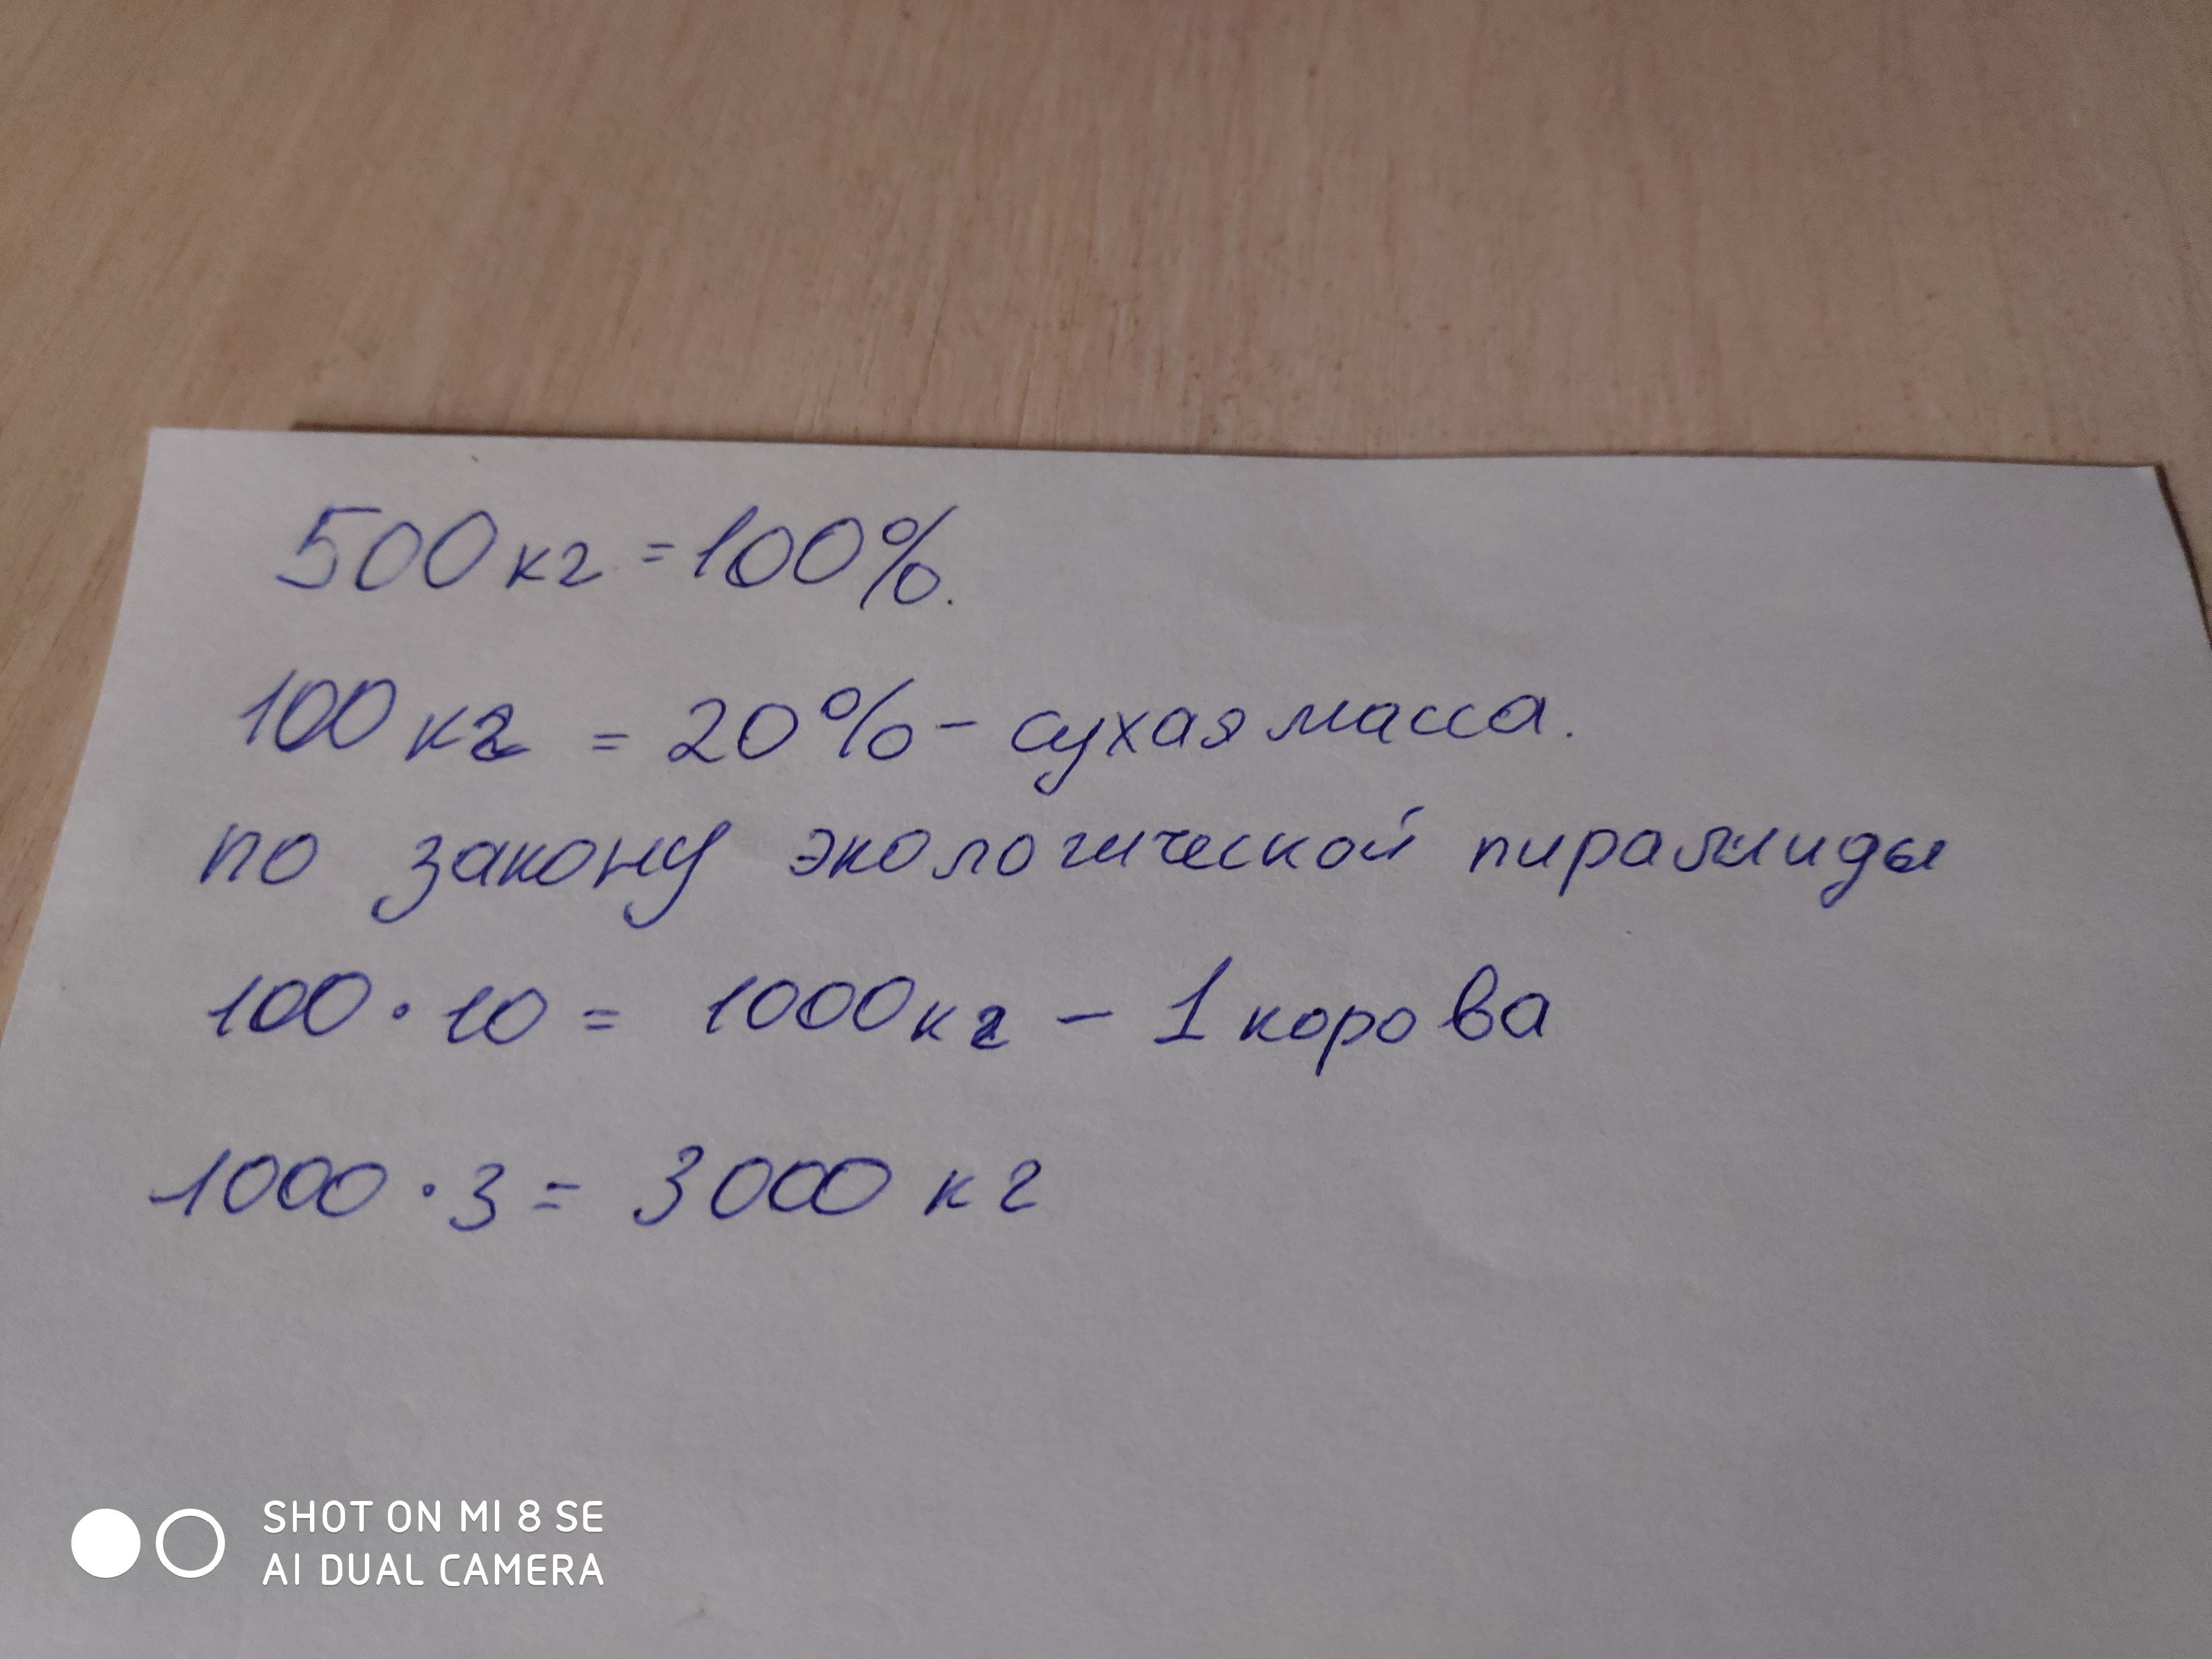 500 кг = 100%.
100 кг = 20% - сухая масса.
по закону экологической пирамиды
100 · 10 = 1000 кг - 1 корова
1000 · 3 = 3000 кг
SHOT ON MI 8 SE
AI DUAL CAMERA